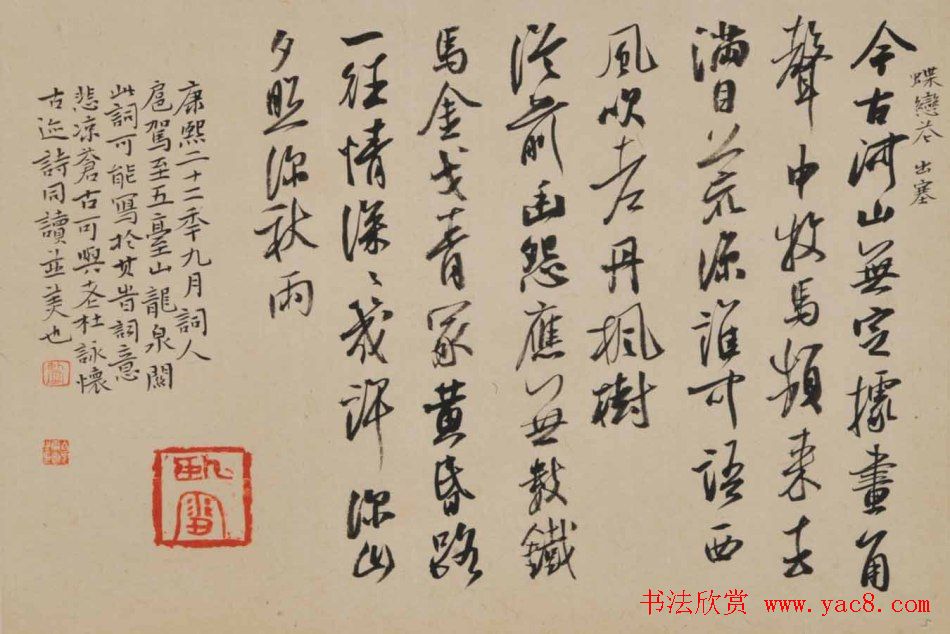 蝶戀花 出塞
今古河山無定據畫角
聲中牧馬頻來去
滿目荒涼誰可語西
風吹老丹楓樹
從前幽怨應無數鐵
馬金戈青冢黃昏路
一往情深〻幾許 深山
夕照深秋雨
康熙二十二年九月詞人
扈駕至五臺山龍泉關
此詞可能寫於其時詞意
悲涼蒼古可與老杜詠懷
古迹詩同讀並美也
书法欣赏 www.yac8.com